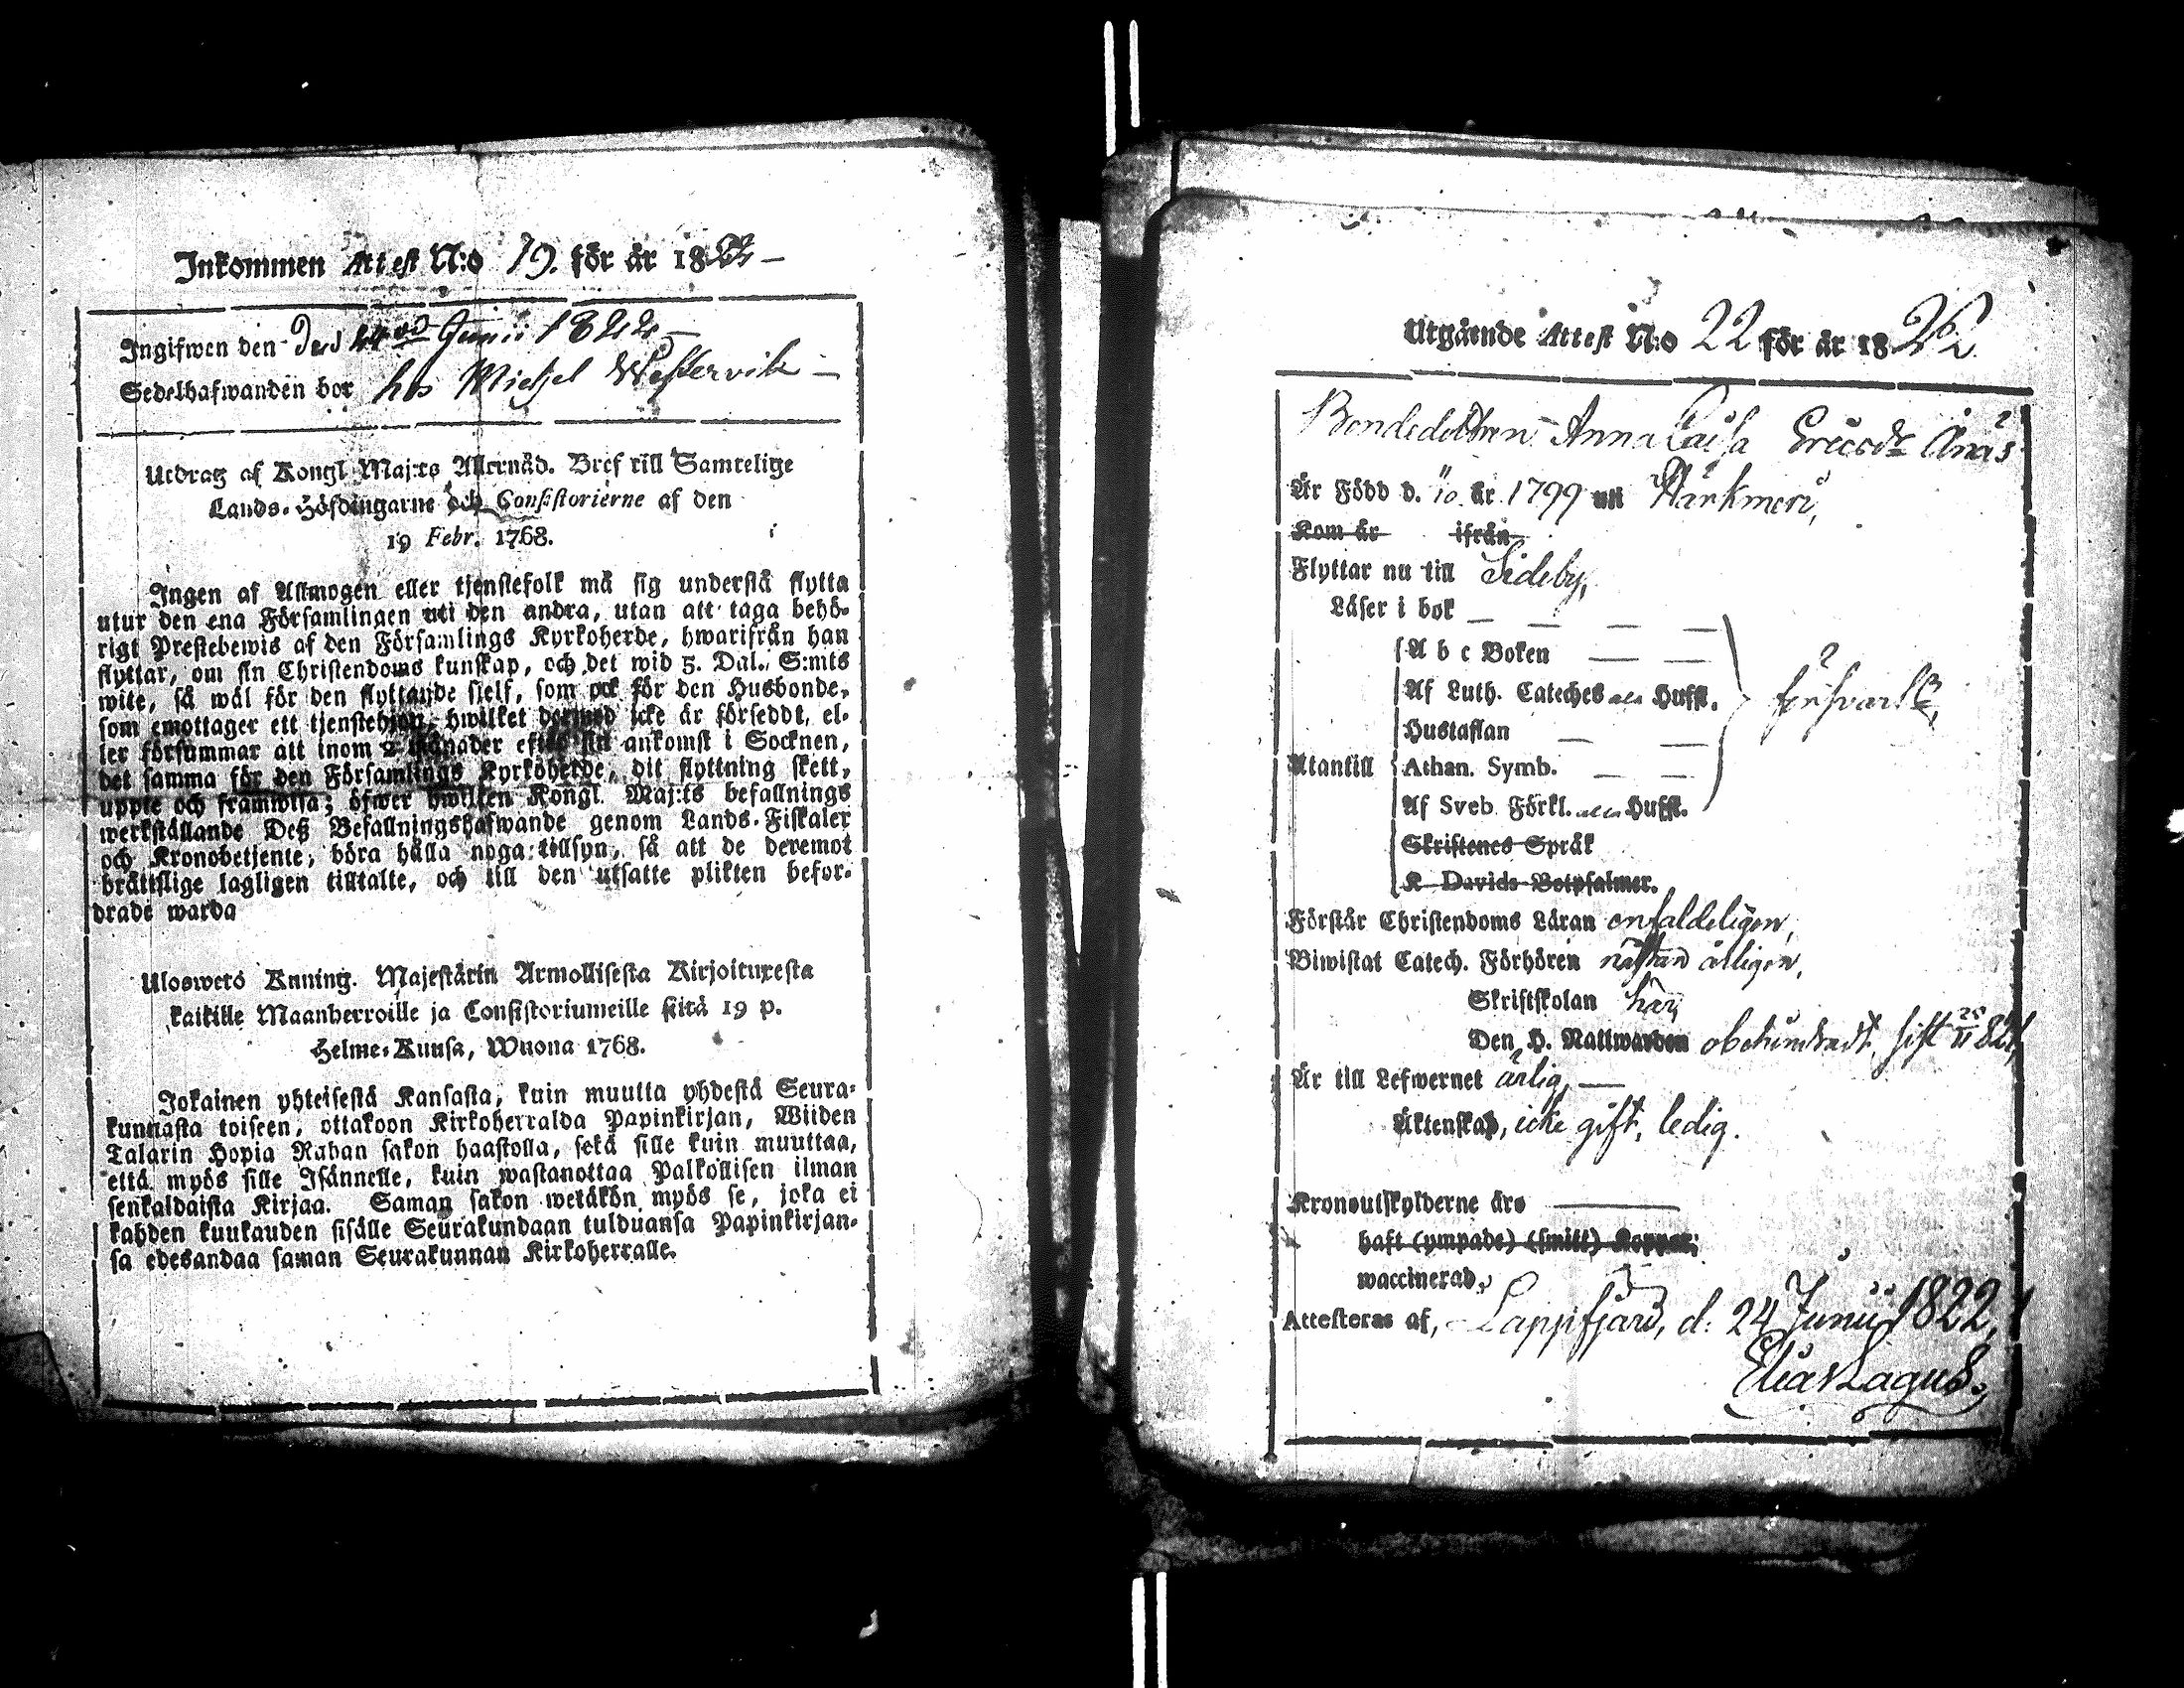 Inkommen Attest N:o 19. för år 1822 –
Ingifwen den Juni 1822 –
Sedelhafwanden bor hos Michel Westervik –
Utdrag af Kongl Maj:ts Allernåd. Bref till Samtelige
Lands-Höfdingarne och Consistorierne af den
19 Febr. 1768.
Ingen af Allmogen eller tjenstefolk må sig understå flytta
utur den ena Församlingen uti den andra, utan att taga behö-
rigt Prestebewis af den Församlings Kyrkoherde, hwarifrån han
flyttar, om sin Christendoms kunskap, och det wid 5. Dal. S:mts
wite, så wäl för den flyttande sielf, som ock för den Husbonde,
som emottager ett tjenstehjon, hwilket dermed icke är försedt, el-
ler försummar att inom 2 Månader efter sin ankomst i Socknen,
det samma för den Församlings Kyrkoherde, dit flyttning skett,
uppte och framwisa; öfwer hwilken Kongl. Maj:ts befallnings
werkställande Deß Befallningshafwande genom Lands-Fiskaler
och Kronobetjente, böra hålla noga tillsyn, så att de deremot
bråttslige lagligen tilltalte, och till den utsatte plikten befor-
drade warda
Uloswetö Kuning. Majestätin Armollisesta Kirjoituxesta
kaikille Maanherroille ja Consistoriumeille siitä 19 p.
Helme-Kuusa, Wuona 1768.
Jokainen yhteisestä Kansasta, kuin muutta yhdestä Seura-
kunnasta toiseen, ottakoon Kirkoherralda Papinkirjan, Wiiden
Talarin Hopia Rahan sakon haastolla, sekä sille kuin muuttaa,
että myös sille Isännelle, kuin wastanottaa Palkollisen ilman
senkaldaista Kirjaa. Saman sakon wetäkön myös se, joka ei
kahden kuukauden sisälle Seurakundaan tulduansa Papinkirjan-
sa edesandaa saman Seurakunnan Kirkoherralle.
Utgående Attest N:o 22 för år 1822
Bondedottren Anna Caisa EricsdrÅnäs
Är Född d. 10. år 1799 uti Härkmeri,
Kom år ifrån
Flyttar nu till Sideby,
Läser i bok – – – –
A b c Boken – –
Af Luth. Cateches Hufst. försvarl.
Hustaflan – –
Utantill Athan. Symb. – –
Af Sveb. Förkl. Hufst.
Skriftenes Språk
K. Davids Botpsalmer.
Förstår Christendoms Läran enfaldeligen,
Biwistat Catech. Förhören nästan årligen,
Skriftskolan här,
Den H. Nattwarden obehindradt, sist
Är till Lefwernet ärlig, –
Äktenskap, icke gift, ledig.
Kronoutskylderne äro –
haft (ympade) (smitt) Koppor,
waccinerad,
Attesteras af, Lappfjärd, d. 24 Junii 1822,
Elias Lagus.